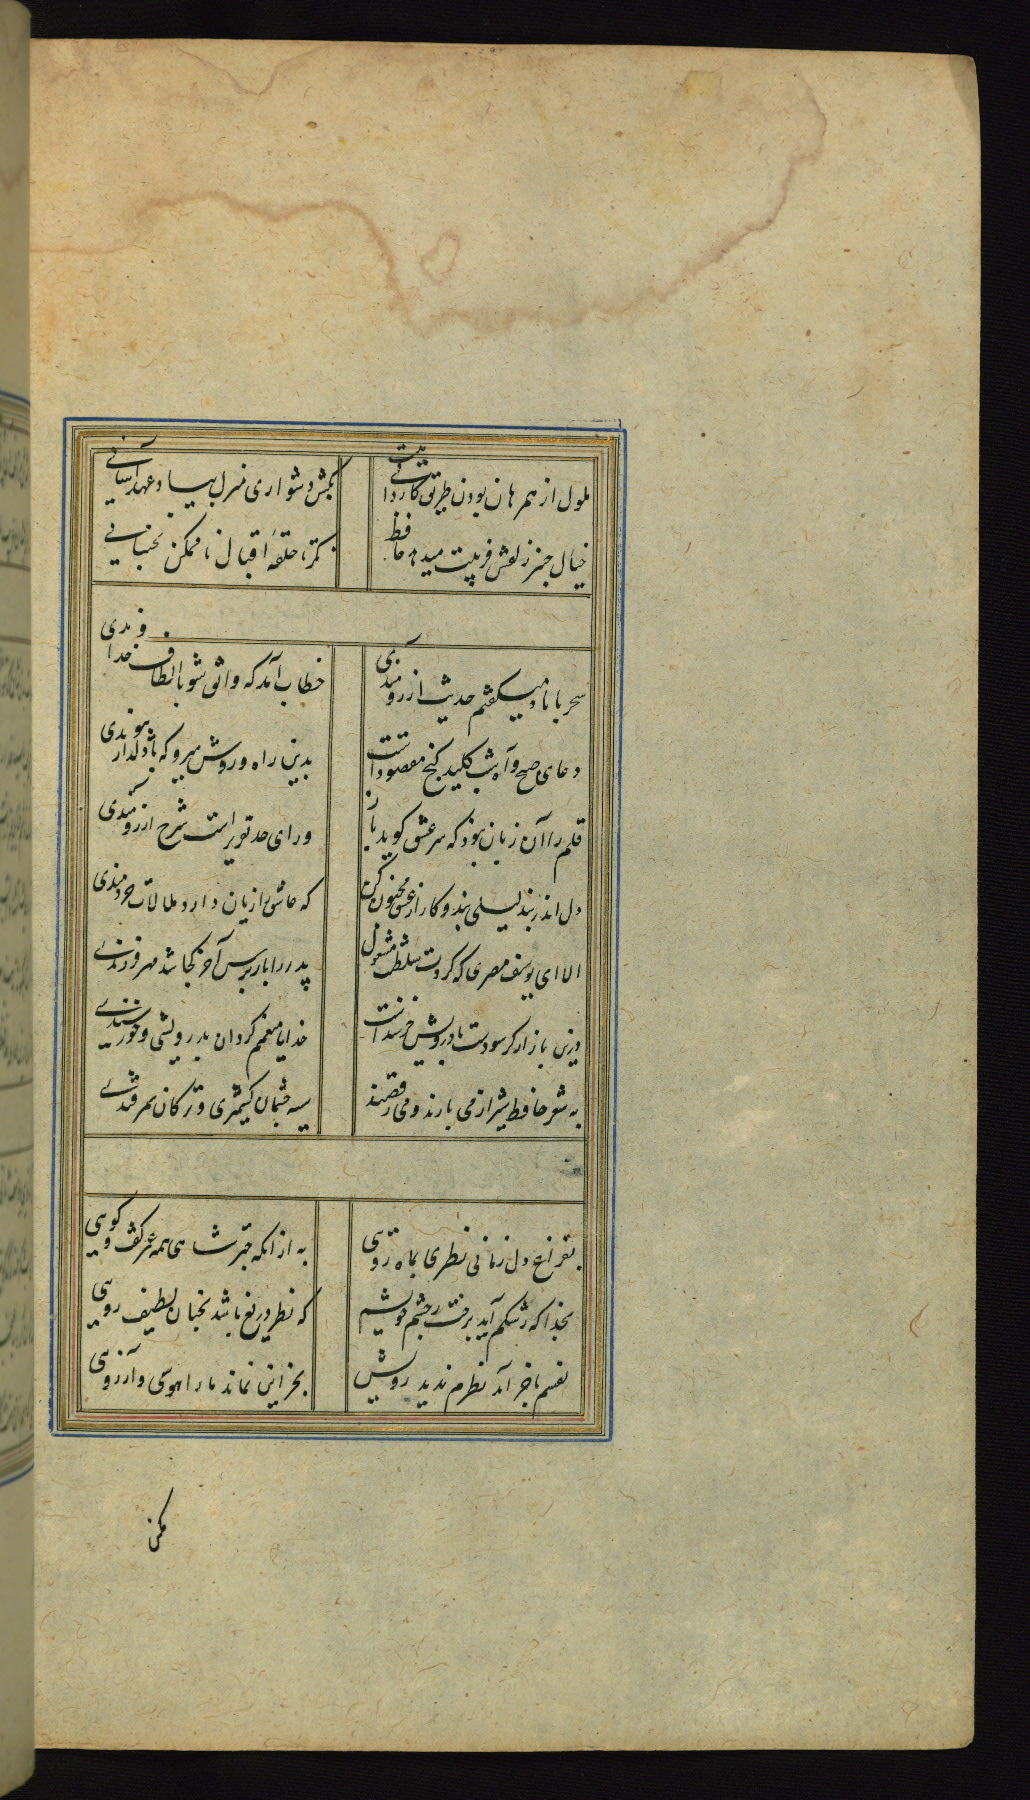 ملول از همرهان بودن طریق کاردانی نیست بکش دشواری منزل بیاد عهد آسانی
خیال چنبر زلفش فریبت میدهد حافظ نکر تا حلقهٔ اقبال ناممکن نجنبانی
سحر با باد میکفتم حدیث ارزومندی خطاب آمد که واثق شو بالطاف خداوندی
دعای صبح و آه شب کلید کنج مقصوداست بدین راه و روش میرو که با دلدار پیوندی
قلم را آن زبان نبود که سر عشق کوید باز ورای حد تقریراست شرح ارزومندی
دل اندر بند لیلی بند و کار از عشق مجنون کن که عاشق را زیان دارد مقالات خردمندی
الا ای یوسف مصری که کردت سلطنت مشغول پدر را باز پرس آخر کجا شد مهر فرزندی
درین بازار کر سودست با درویش خرسنداست خدایا منعمم کردان بدرویشی و خورسندی
به شعر حافظ شیراز می نازند و می رقصند سیه چشمان کشمیری و ترکان سمرقندی
بفراغ دل زمانی نظری بماه رویی به از آنکه چتر شاهی همه عمر کفت وکویی
بخدا که رشکم آید برخت ز چشم خویشم که نظر دریغ باشد بچنان لطیف رویی
نفسم باخر آمد نظرم ندید رویش بجز این نماند ما را هوسی و آرزویی
مکن